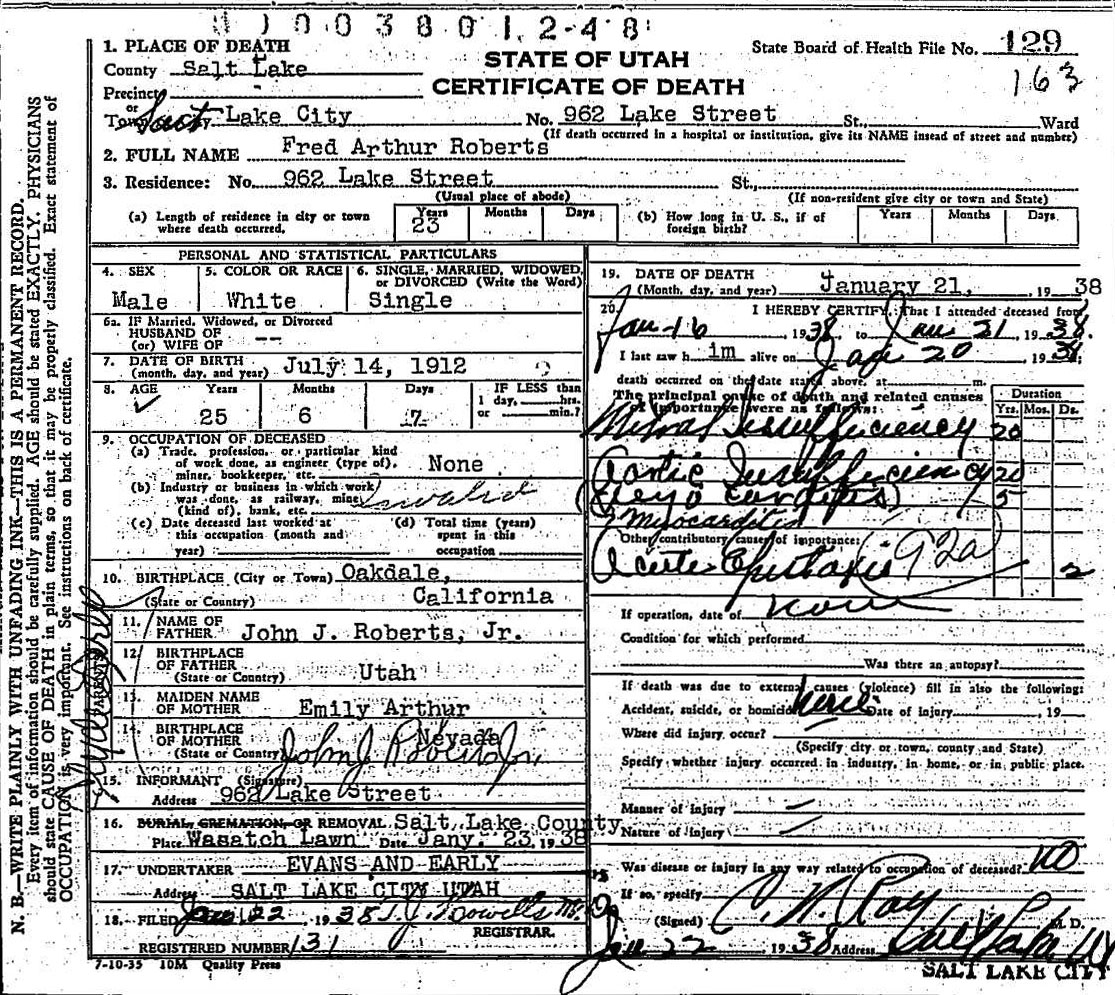 0 0 3 8 0 1 2-4 8
1. PLACE OF DEATH
County Salt Lake
Precinct
or
Town Salt Lake City
STATE OF UTAH
CERTIFICATE OF DEATH
State Board of Health File No. 129
163
No. 962 Lake Street St., Ward
(If death occurred in a hospital or institution, give its NAME insead of street and number)
2. FULL NAME Fred Arthur Roberts
3. Residence: No. 962 Lake Street St.,
(Usual place of abode) (If non-resident give city or town and State)
(a) Length of residence in city or town where death occurred. Years 23 Months Days
(b) How long in U. S., if of foreign birth? Years Months Days
PERSONAL AND STATISTICAL PARTICULARS
4. SEX Male
5. COLOR OR RACE White
6. SINGLE, MARRIED, WIDOWED, or DIVORCED (Write the Word) Single
6a. IF Married, Widowed, or Divorced
HUSBAND OF
(or) WIFE OF --
7. DATE OF BIRTH
(month, day, and year) July 14, 1912
8. AGE Years 25 Months 6 Days 7
IF LESS than
1 day, hrs.
or min.?
9. OCCUPATION OF DECEASED
(a) Trade, profession, or particular kind
of work done, as engineer (type of),
miner, bookkeeper, etc. None
(b) Industry or business in which work
was done, as railway, mine
(kind of), bank, etc. Invalid
(c) Date deceased last worked at
this occupation (month and
year)
(d) Total time (years)
spent in this
occupation
10. BIRTHPLACE (City or Town) Oakdale,
(State or Country) California
PARENTS
11. NAME OF
FATHER John J. Roberts, Jr.
12. BIRTHPLACE
OF FATHER
(State or Country) Utah
13. MAIDEN NAME
OF MOTHER Emily Arthur
14. BIRTHPLACE
OF MOTHER
(State or Country) Nevada
15. INFORMANT (Signature) John J Roberts Jr.
Address 962 Lake Street
16. BURIAL, CREMATION, OR REMOVAL Salt Lake County
Place Wasatch Lawn Date Jany. 23, 19 38
17. UNDERTAKER EVANS AND EARLY
Address SALT LAKE CITY UTAH
18. FILED Jan 22, 1938 T. J. Howells
REGISTRAR.
REGISTERED NUMBER 131
7-10-35 10M Quality Press
19. DATE OF DEATH
(Month, day, and year) January 21, 19 38
20. I HEREBY CERTIFY, That I attended deceased from
Jan 16 1938, to Jan 21 1938.
I last saw h im alive on Jan 20 1938
death occurred on the date stated above, at m.
The principal cause of death and related causes
of importance were as follows:
Duration
Yrs. Mos. Ds.
Mitral Insufficiency 20
Aortic Insufficiency 20
5
Myocarditis
Other contributory causes of importance:
92a
Acute Epistaxis 2
If operation, date of none
Condition for which performed
Was there an autopsy?
If death was due to external causes (violence) fill in also the following:
Accident, suicide, or homicide none Date of injury 19
Where did injury occur?
(Specify city or town, county and State)
Specify whether injury occurred in industry, in home, or in public place.
Manner of injury
Nature of injury
Was disease or injury in any way related to occupation of deceased? no
If so, specify
(Signed) C. N. Ray M. D.
Jan 22 1938 Address Salt Lake
SALT LAKE CITY
N. B.—WRITE PLAINLY WITH UNFADING INK—THIS IS A PERMANENT RECORD.
Every item of information should be carefully supplied. AGE should be stated EXACTLY. PHYSICIANS
should state CAUSE OF DEATH in plain terms, so that it may be properly classified. Exact statement of
OCCUPATION is very important. See instructions on back of certificate.